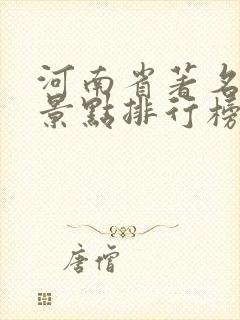 河南省著名
景點排行榜
唐僧